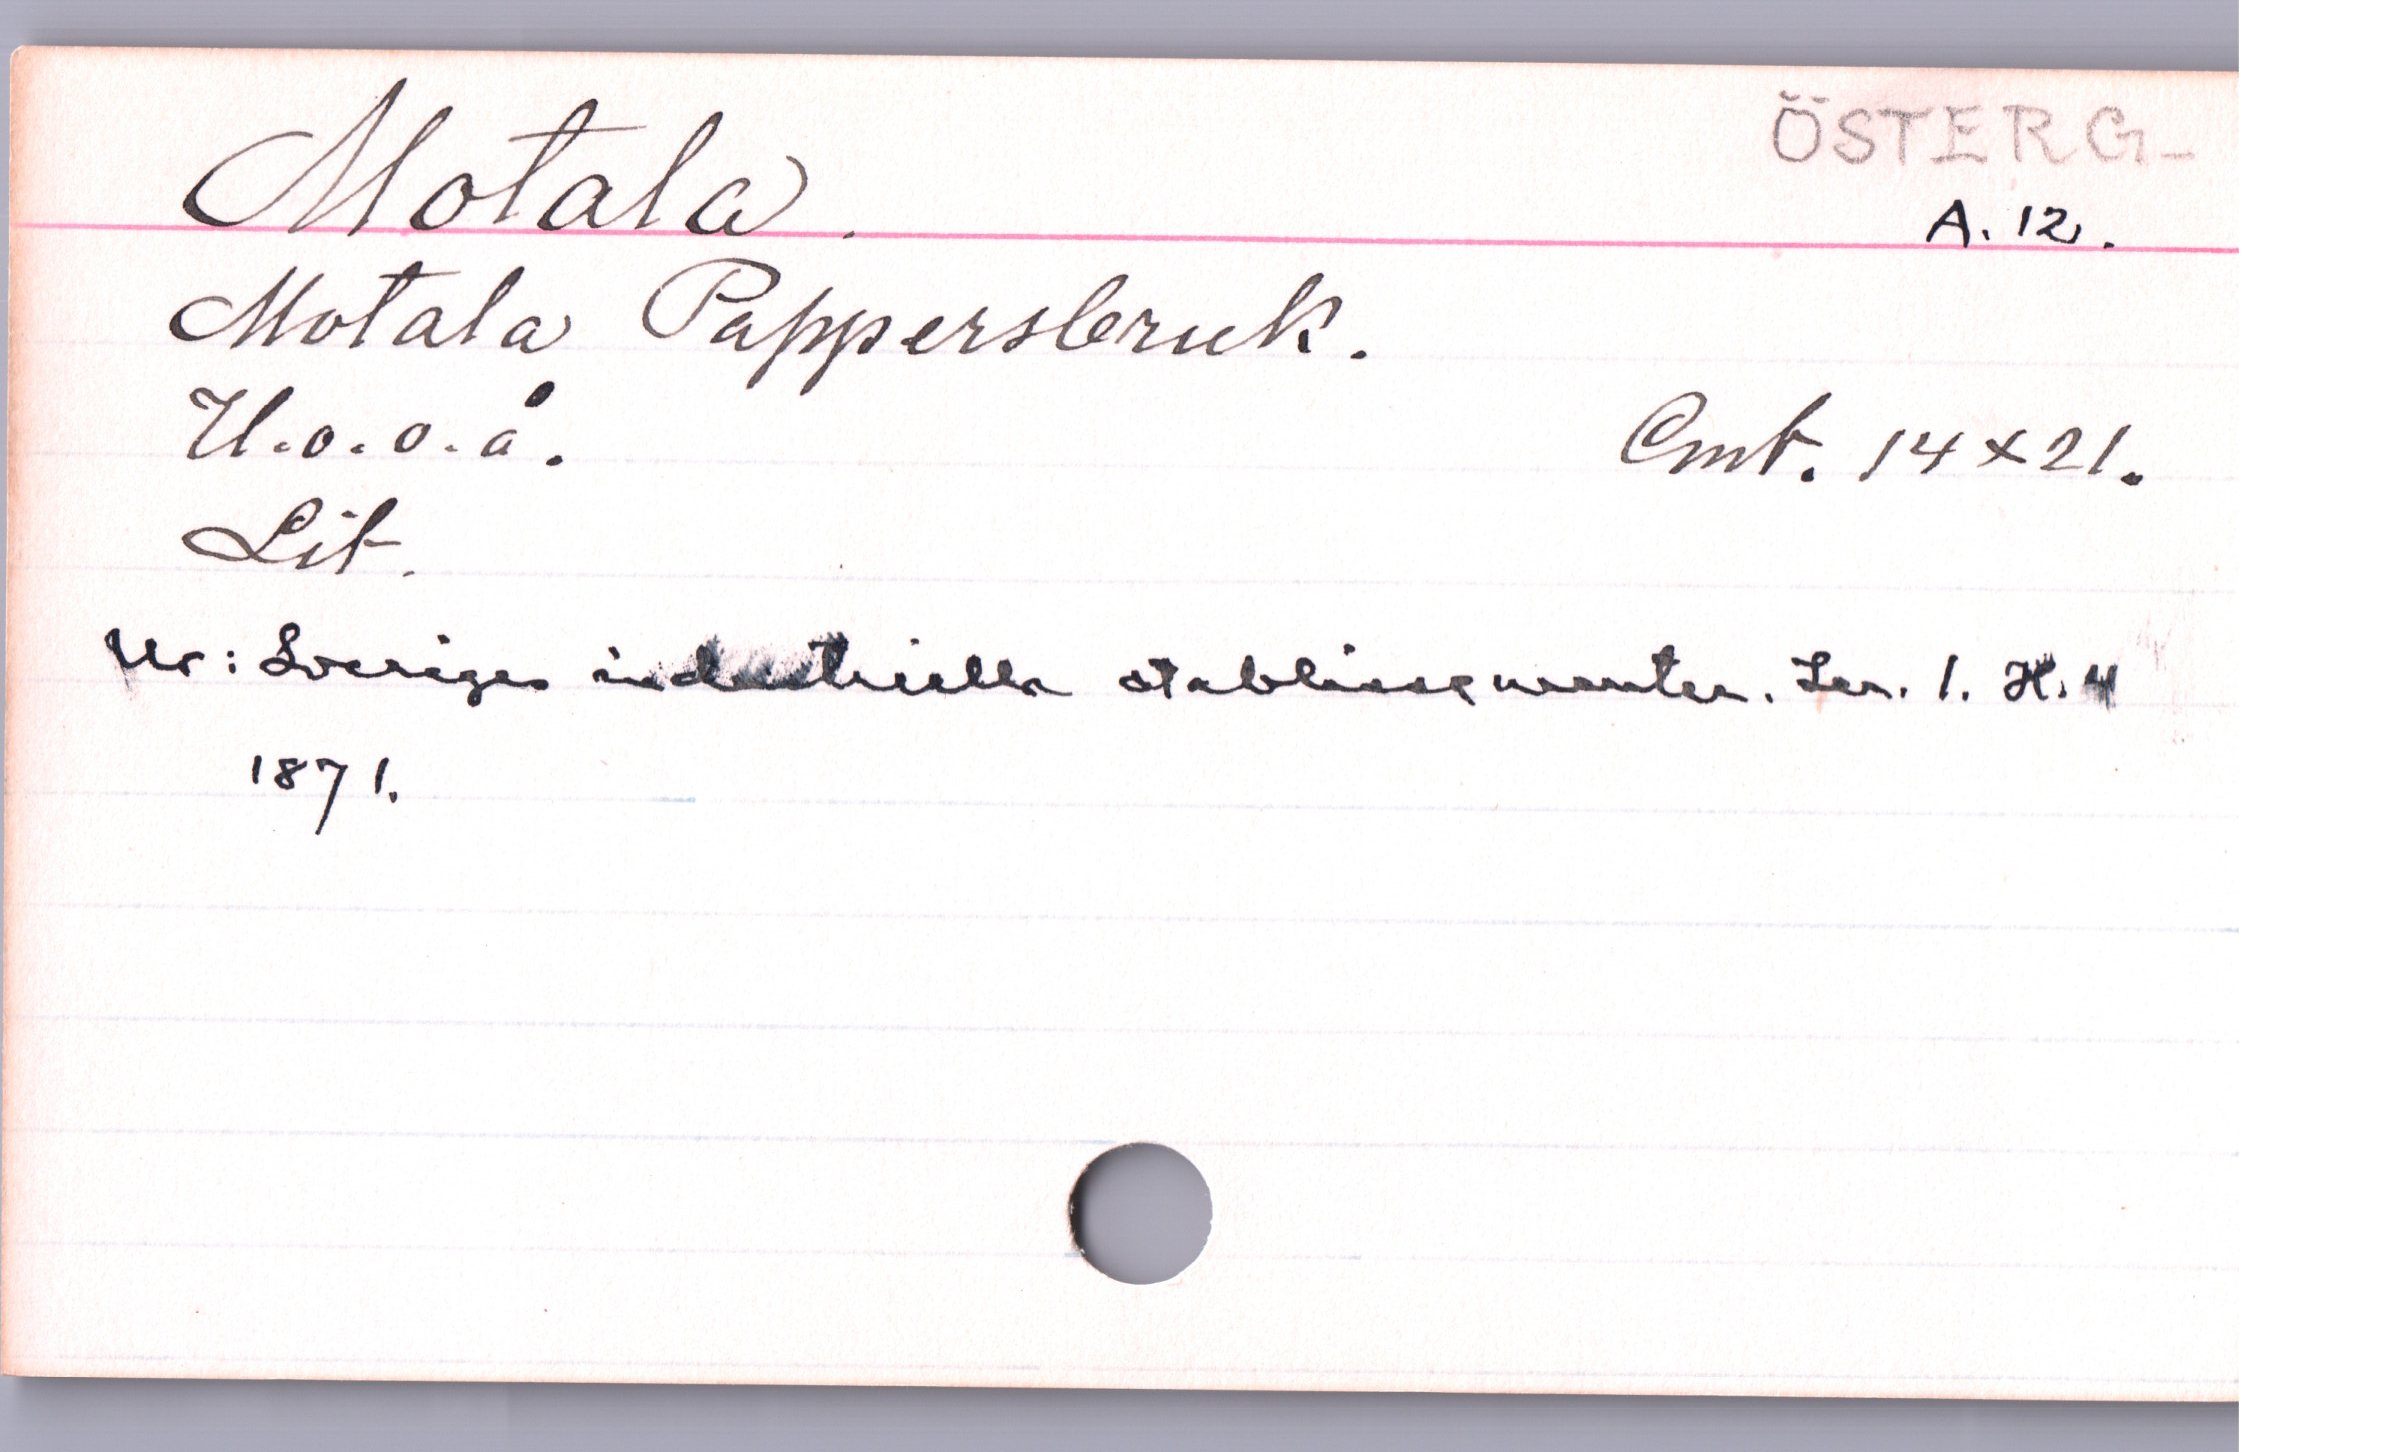 Motala.
ÖSTERG-
A. 12.
Motala Pappersbruk.
U.o.o.å.
Cmt. 14 x 21.
Lit.
Ur: Sveriges industriella etablissementer. Ser. 1. H. 4
1871.